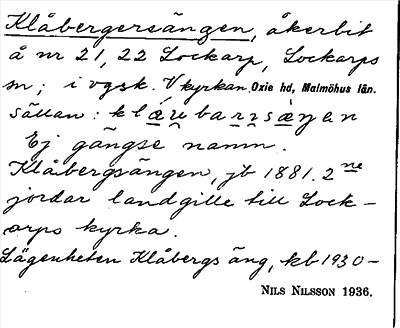 Klåbergersängen, åkerbit
å nr 21, 22 Lockarp, Lockarps
sn; i vgsk. V kyrkan. Oxie hd, Malmöhus län.
Sällan: klæ̱u̱baṟṉsæ̱ŋan
Ej gängse namn.
Klåbergsängen, jb 1881. 2 ne
jordar landgille till Lock-
arps kyrka.
Lägenheten Klåbergs äng, kb 1930-
NILS NILSSON 1936.